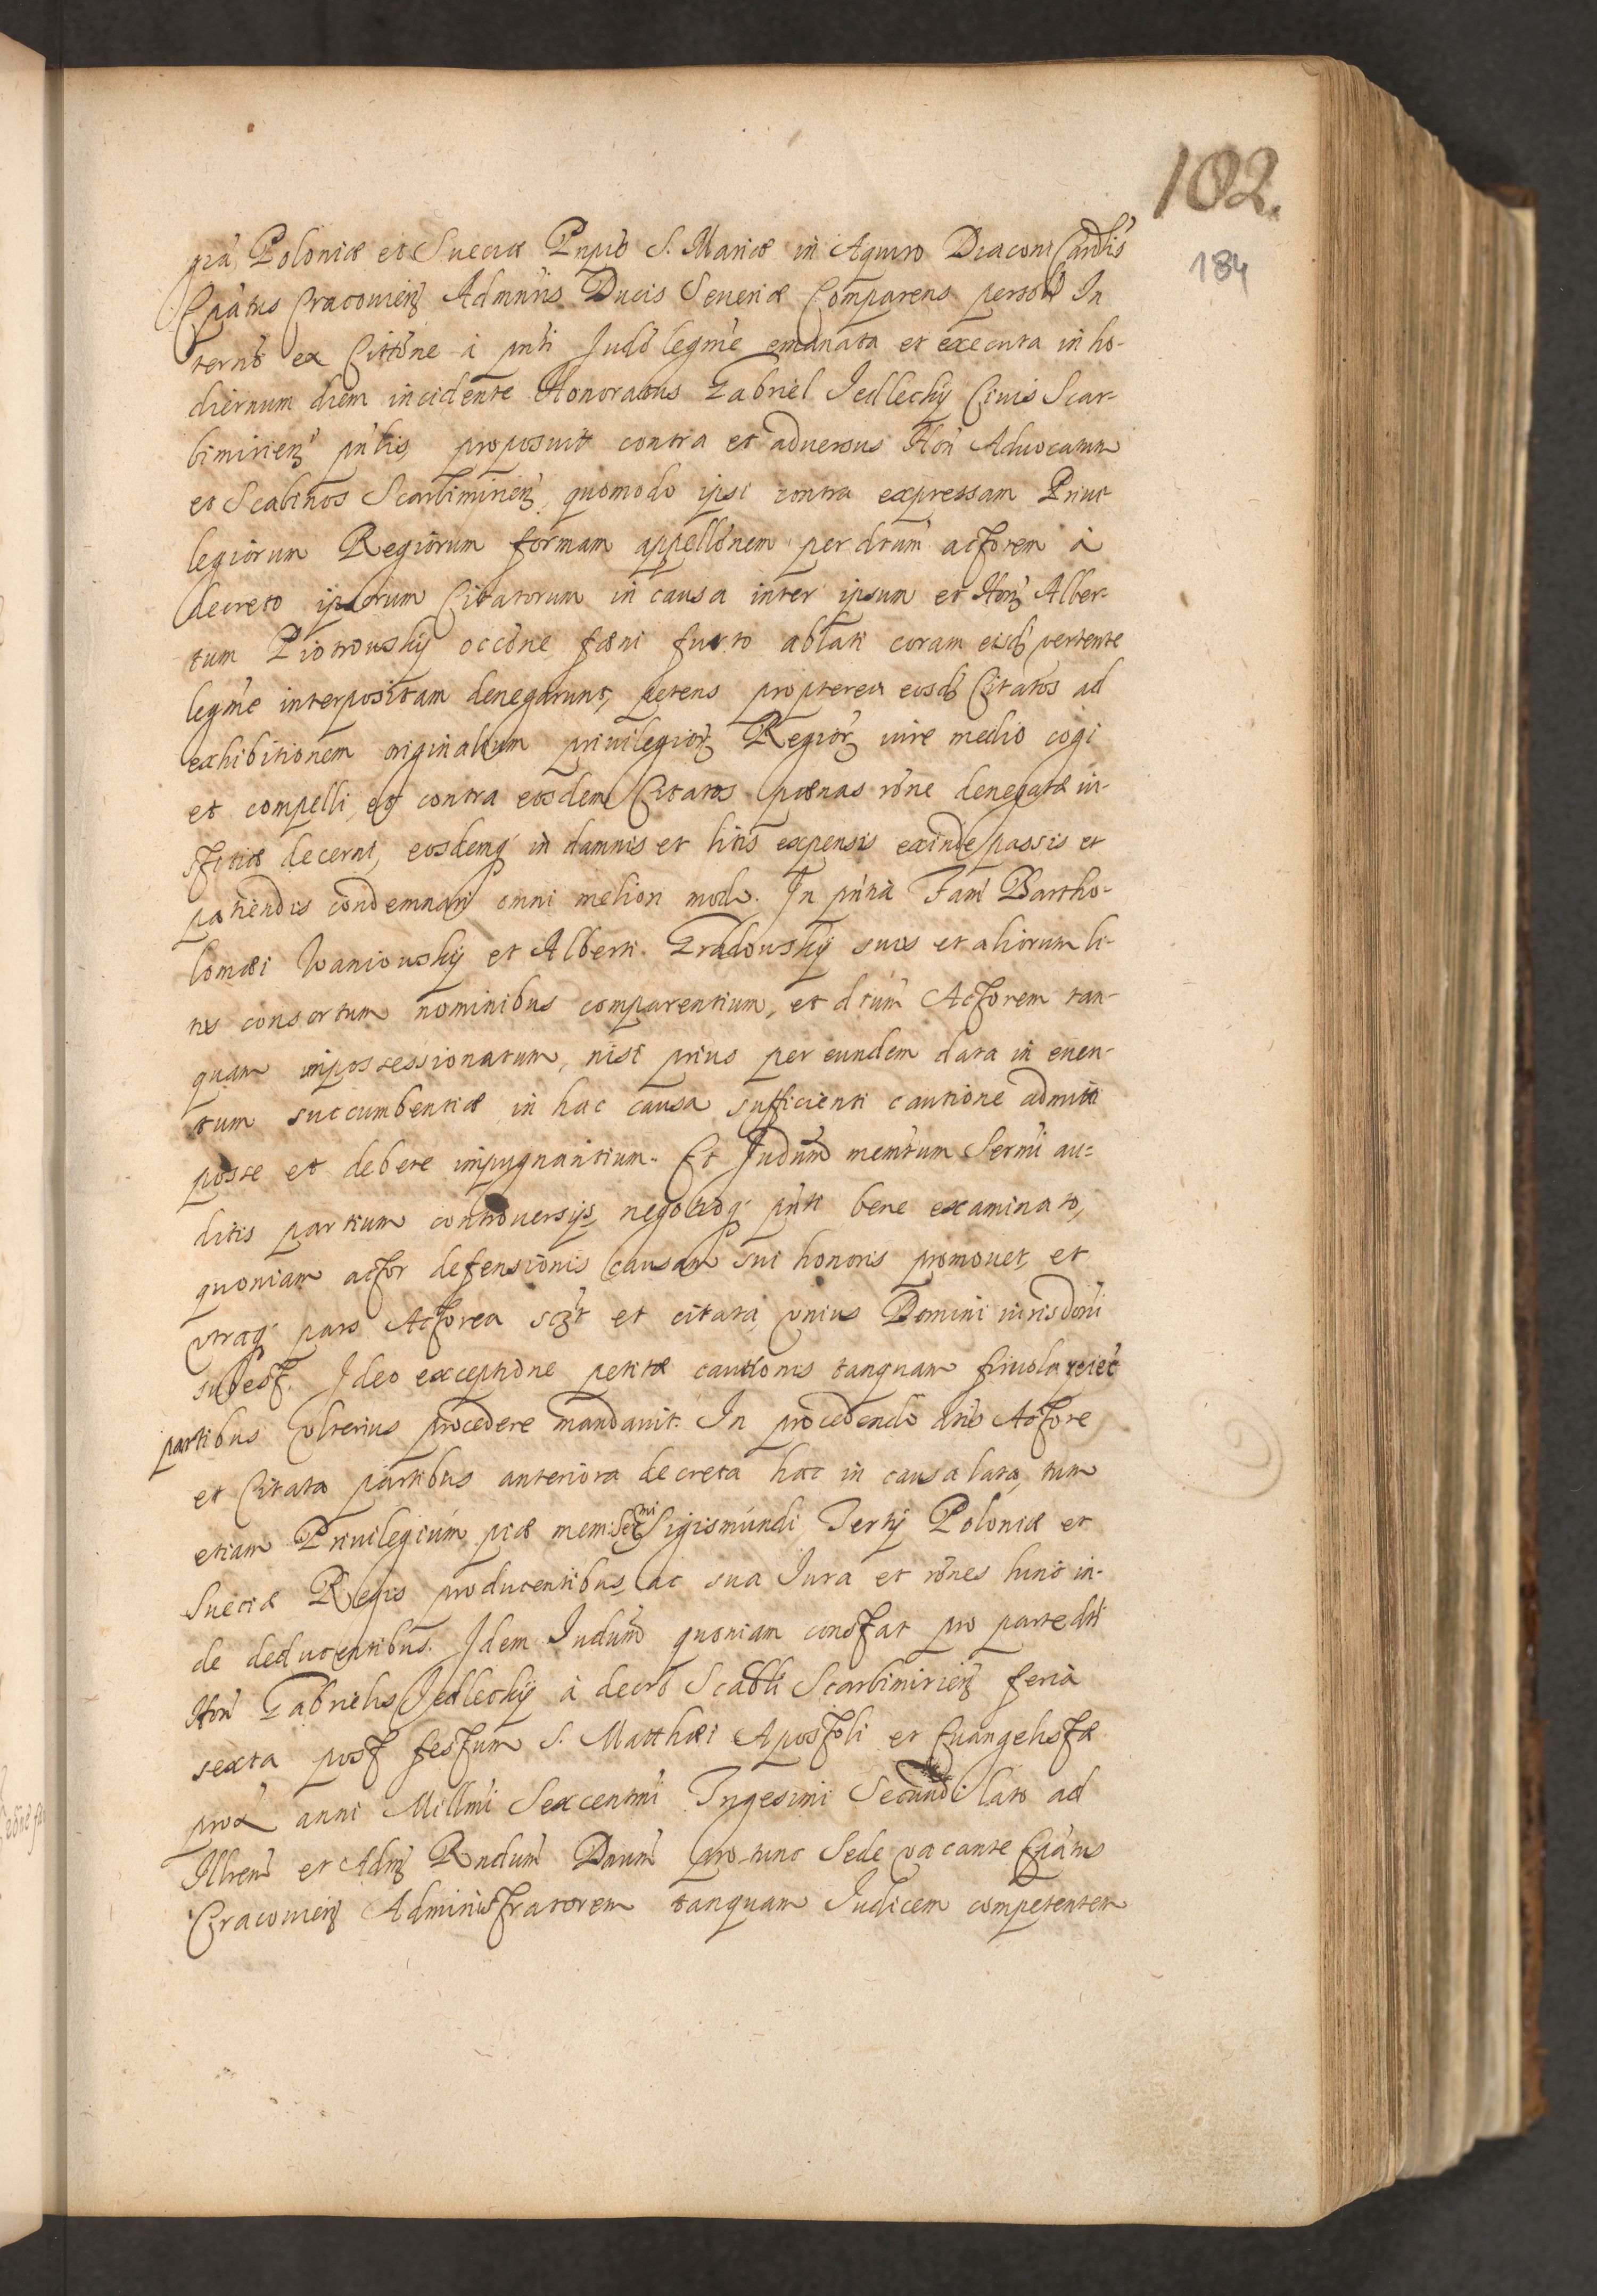 102.
184
grã Poloniæ et Sueciæ Prnpĩs S. Mariæ in Aquiro Diaconi Cardlis
Epãtus Cracouieñ Admnris Ducis Seueriæ Comparens persoñ In
termõ ex Cittõne à pnti Judõ legmẽ emanata et executa in ho-
diernum diem incidente Honoratus Gabriel Jedlechÿ Ciuis Scar-
bimirieñ pñlis, proposuit contra et aduersus Hoñ Aduocatum
et Scabinos Scarbimirieñ, quomodo ipsi contra expressam Priui-
legiorum Regiorum formam appellõnem per dtum actorem à
decreto ipsorum Citatorum in causa inter ipsum et Hoñ Alber-
tum Piotrouskÿ occõne fæni furto ablati coram eisd vertente
legmẽ interpositam denegarunt, petens propterea eosd Citatos ad
exhibitionem originalium priuilegiorz Regiorz iure medio cogi
et compelli, et contra eosdem Citatos pænas rõne denegatæ iu-
stitiæ decerni, eosdemq in damnis et litis expensis exinde passis et
patiendis condemnari omni meliori modo. In pñtia Fam Bartho-
lomæi Waniouskÿ et Alberti Gradouskÿ suos et aliorum li-
tis consortum nominibus comparentium, et dtum Actorem tan-
quam impossessionatum, nisi prius per eundem data in euen-
tum succumbentiæ in hac causa sufficienti cautione admitti
posse et debere impugnantium. Et Judum memtum Sermi au-
ditis partium controuersÿs, negotioq pñti bene examinato,
quoniam actor defensionis causam sui honoris promouet, et
vtraq pars Actorea sczt et citata vnius Domini iurisdoni
subest. Ideo exceptione petitæ cautionis tanquam friuola reiec
partibus vlterius procedere mandauit. In procedendo dtis Actore
et Citata partibus anteriora decreta hac in causa lata, tum
etiam Priuilegium piæ mem: Sermi Sigismundi Tertÿ Poloniæ et
Sueciæ Regis producentibus, ac sua Jura et rõnes hinc in-
de deducentibus. Idem Judum quoniam constat pro parte dti
Hoñ Gabrielis Jedlechÿ à decrõ Scabli Scarbimirieñ feria
sexta post festum S. Matthæi Apostoli et Euangelistæ
prox anni Millmi Sexcentmi Trigesimi Secundi lato ad
Illrem et Adm Rndum Dnum pro tunc Sede vacante Epãtus
Cracouieñ Administratorem tanquam Judicem competentem